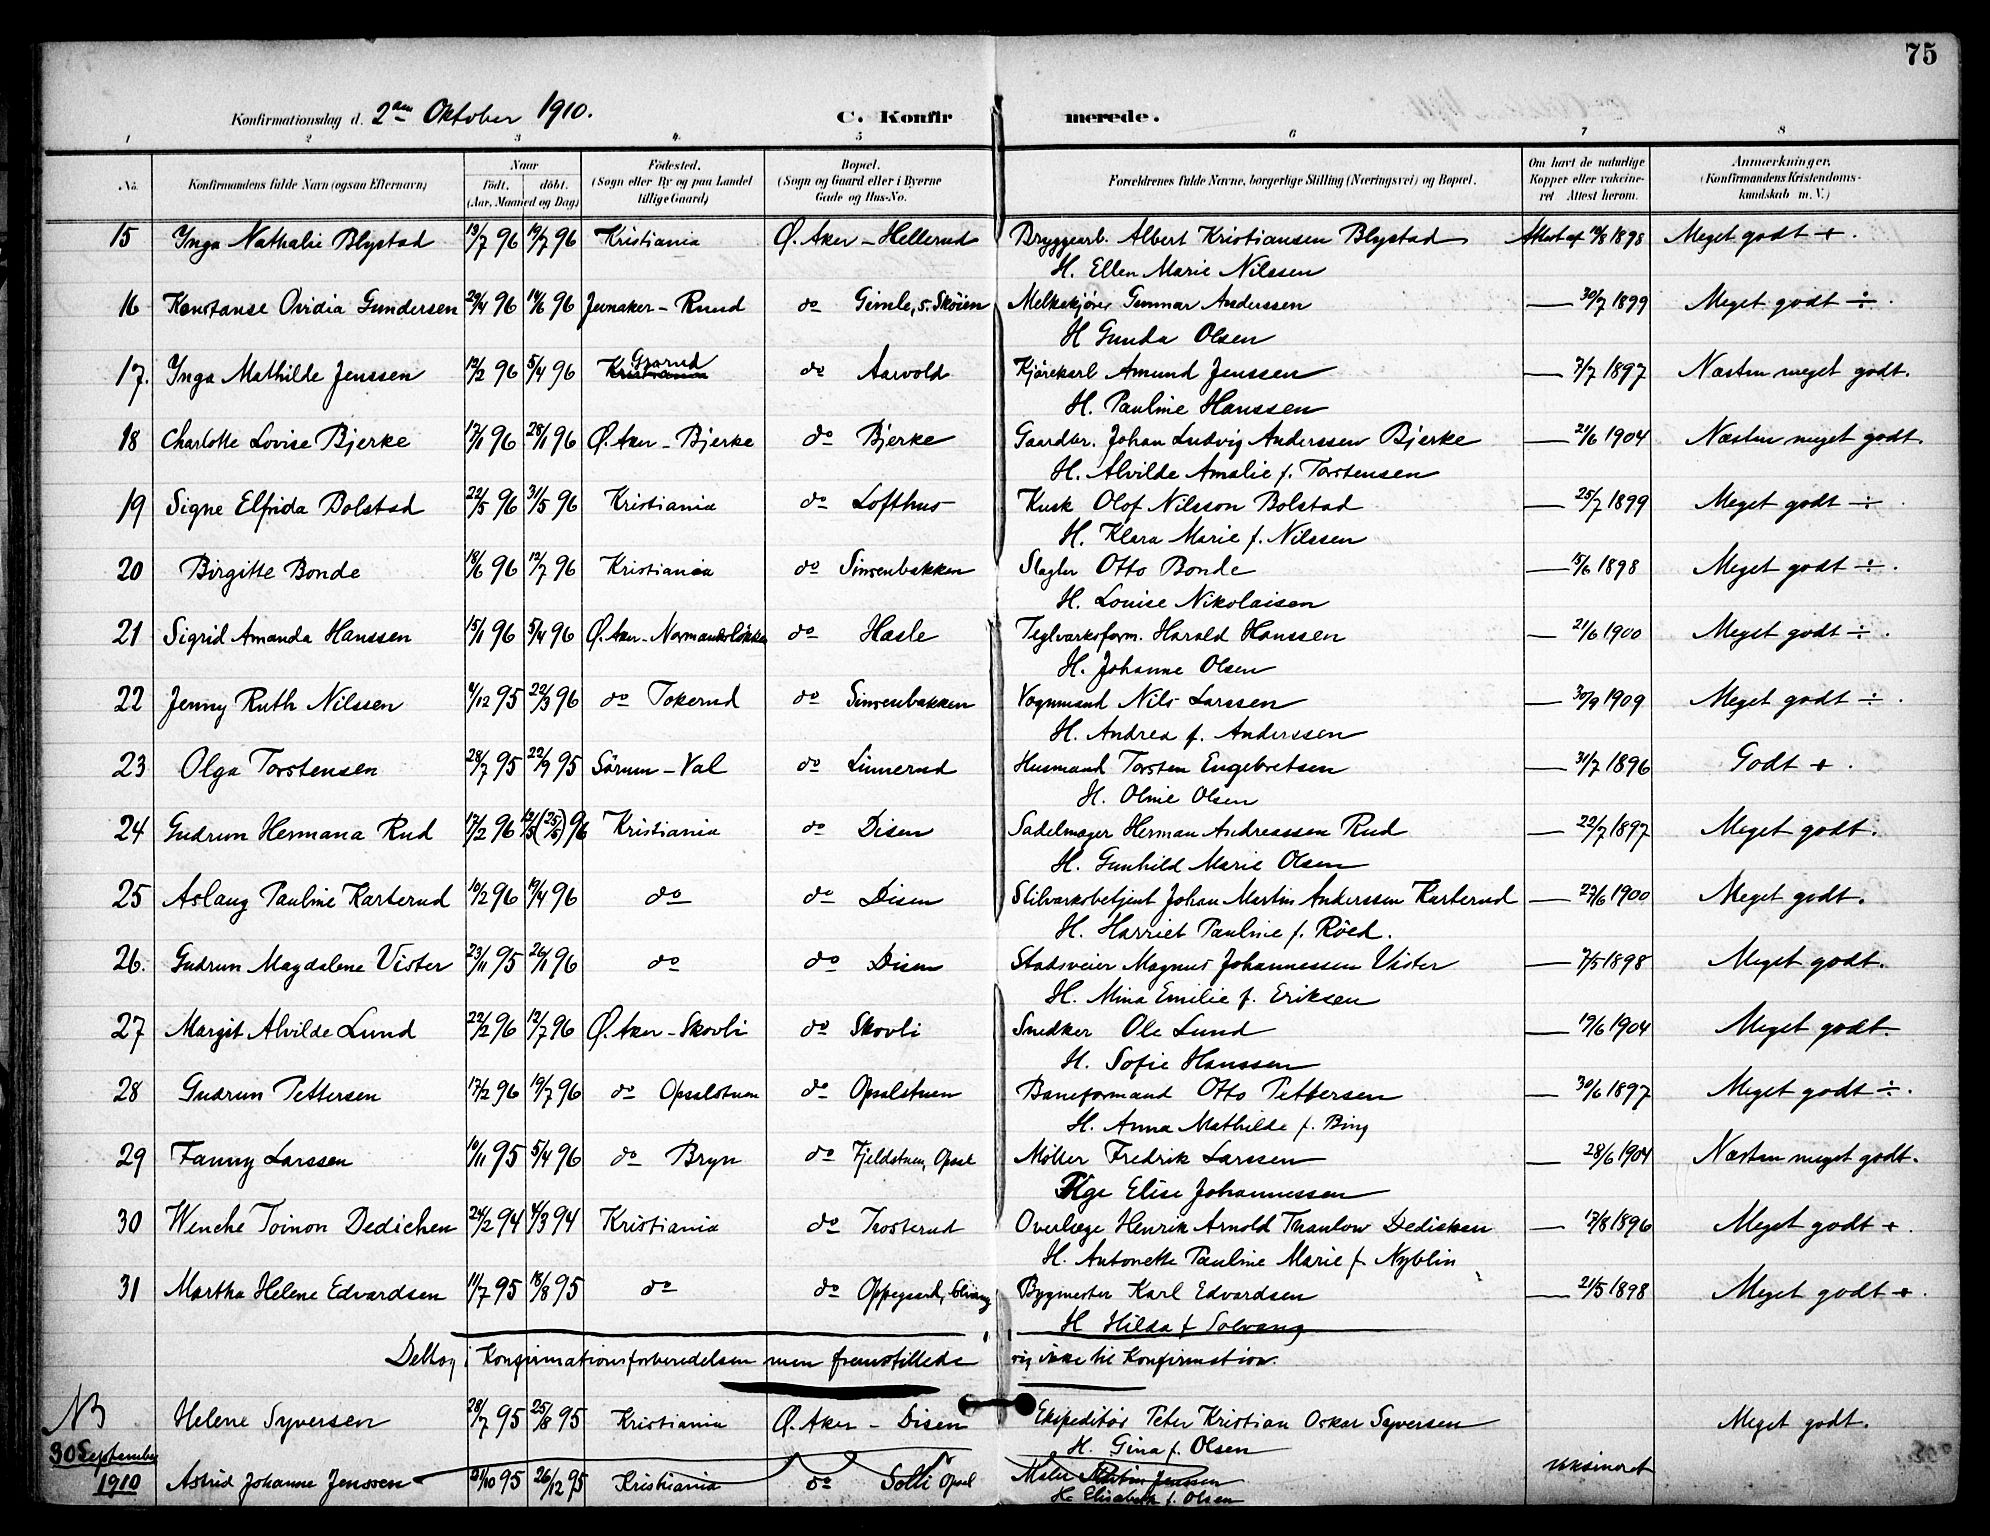 75
Konfirmationsdag d. 2den Oktober 1910. C. Konfir merede.
1 2 3 4. 5 6 7 8
No. Konfirmandens fulde Navn (ogsaa Efternavn) Naar födt. döbt. (Aar, Maaned og Dag) Födested. (Sogn eller By og paa Landet tillige Gaard) Bopæl. (Sogn og Gaard eller i Byerne Gade og Hus-No. Forældrenes fulde Navne, borgerlige Stilling (Næringsvei) og Bopæl. Om havt de naturlige Kopper eller vakcineret Attest herom. Anmærkninger. (Konfirmandens Kristendomskundskab m. V.)
15 Inga Nathalie Blystad 13/7 96 19/7 96 Kristiania Ø. Aker - Hellerud Bryggearb. Albert Kristiansen Blystad Attest af 1898 Meget godt +.
H. Ellen Marie Nilssen
16 Konstanse Ovidia Gundersen 29/4 96 14/6 96 Jevnaker - Ruud do Gimle, s. Skøien Melkekjører Gunnar Anderssen — 30/7 1899 Meget godt ÷.
H Gunda Olsen
17. Inga Mathilde Jenssen 12/2 96 5/4 96 Kristiania Grorud do Aarvold Kjørekarl Amund Jenssen — 7/7 1897 Næsten meget godt.
H. Pauline Hanssen
18 Charlotte Lovise Bjerke 17/1 96 28/1 96 Ø. Aker - Bjerke do Bjerke Gaardbr. Johan Ludvig Anderssen Bjerke — 21/6 1904 Næsten meget godt.
H. Alvilde Amalie f. Torstensen
19 Signe Elfrida Bolstad 22/5 96 31/5 96 Kristiania do Lofthus Kusk Olof Nilsson Bolstad — 25/7 1899 Meget godt ÷.
H. Klara Marie f. Nilssen
20 Birgitte Bonde 18/6 96 12/7 96 Kristiania do Sinsenbakken Slagter Otto Bonde — 15/6 1898 Meget godt ÷.
H. Louise Nikolaisen
21 Sigrid Amanda Hanssen 15/1 96 5/4 96 Ø. Aker - Normandsløkken do Hasle Teglverksform. Harald Hanssen — 21/6 1900 Meget godt ÷.
H. Johanne Olsen
22 Jenny Ruth Nilssen 4/12 95 22/3 96 do Tokerud do Sinsenbakken Vognmand Nils Larssen — 30/9 1909 Meget godt ÷.
H. Andrea f. Anderssen
23 Olga Torstensen 28/7 95 22/9 95 Sørum - Val do Linnerud Husmand Torsten Engebretsen — 31/7 1896 Godt +.
H. Oline Olsen
24 Gudrun Hermana Rud 17/2 96 (25/5) 96 Kristiania do Disen Sadelmager Herman Andreassen Rud — 22/7 1897 Meget godt.
H. Gunhild Marie Olsen
25 Aslaug Pauline Karterud 10/2 96 19/4 96 do do Disen Johan Martin Anderssen Karterud — 27/6 1900 Meget godt.
H. Harriet Pauline f. Röed.
26. Gudrun Magdalene Vister 23/11 95 26/1 96 do do Disen Stadsveier Magnus Johannessen Vister — 7/5 1898 Meget godt.
H. Mina Emilie f. Eriksen
27 Margit Alvilde Lund 22/2 96 12/7 96 Ø. Aker - Skovli do Skovli Snedker Ole Lund — 19/6 1904 Meget godt.
H. Sofie Hanssen
28 Gudrun Pettersen 17/2 96 19/7 96 do Opsalstuen do Opsalstuen Baneformand Otto Pettersen — 30/6 1897 Meget godt ÷.
H. Anna Mathilde f. Bing
29 Fanny Larssen 10/11 95 5/4 96 do Bryn do Fjeldstuen, Opsal Møller Fredrik Larssen — 28/6 1904 Næsten meget godt.
Pige Elise Johannessen
30 Wenche Toinon Dedichen 24/2 94 4/3 94 Kristiania do Trosterud Overlæge Henrik Arnold Thaulow Dedichen — 17/8 1896 Meget godt +.
H. Antonette Pauline Marie f. Nyblin
31 Martha Helene Edvardsen 11/7 95 18/8 95 do do Oppegaard, Bygmester Karl Edvardsen — 21/5 1898 Meget godt +.
H Hilda f Solvang
Deltog i Konfirmationsforberedelsen men fremstillede sig ikke til Konfirmation.
NB Helene Syversen 28/7 95 25/8 95 Kristiania Ø. Aker - Disen Ekspeditør Peter Kristian Oskar Syversen Meget godt.
H. Gina f. Olsen
30 September 1910 Astrid Johanne Jenssen 21/10 95 26/12 95 Kristiania do Solli Opsal Maler Martin Jenssen vaksineret
H. Elisabeth f. Olsen